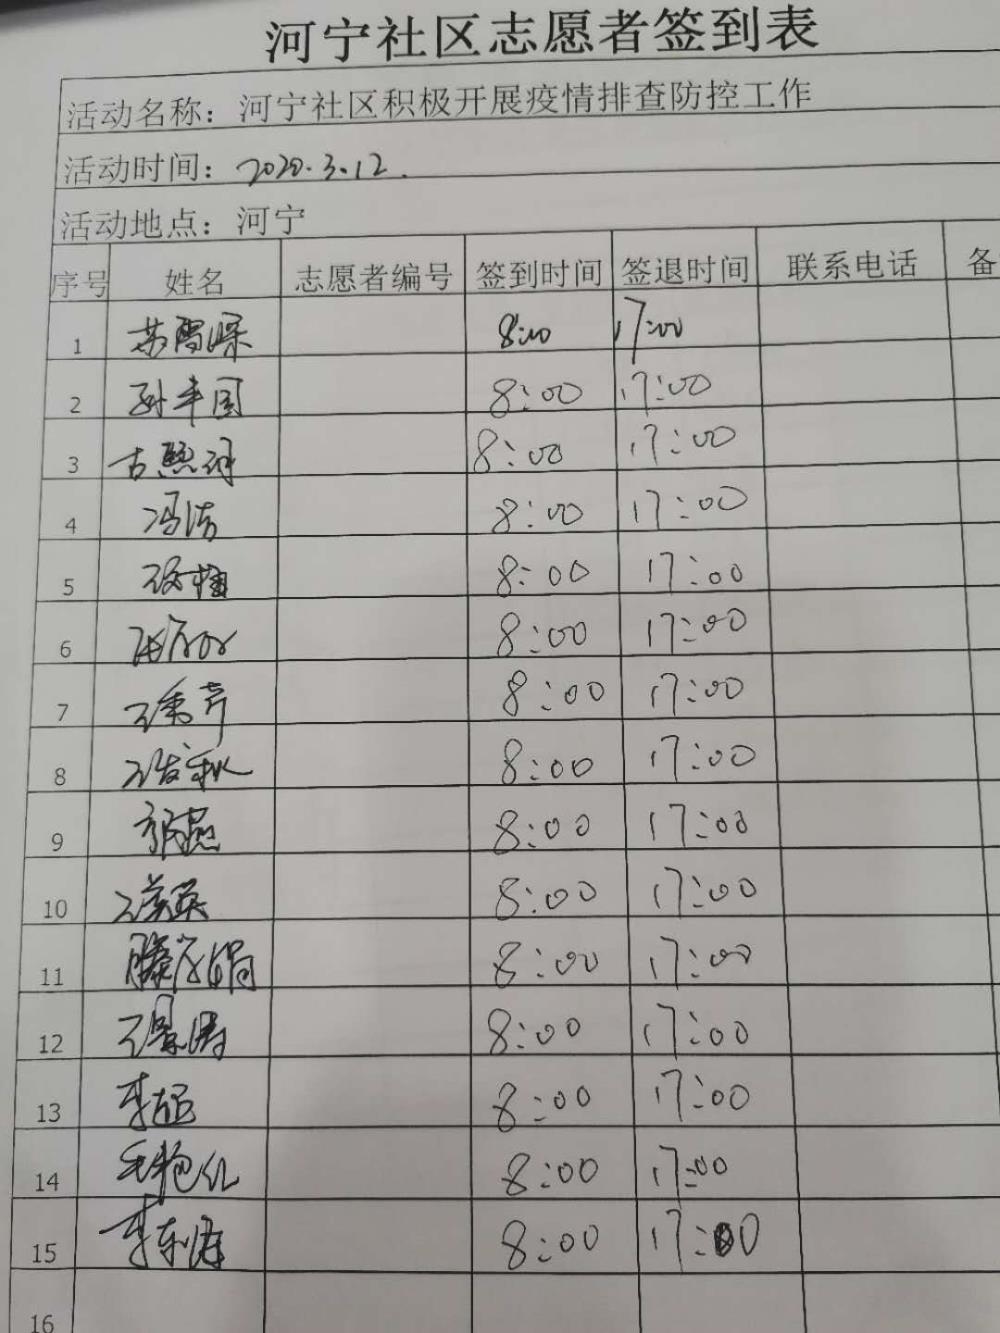 河宁社区志愿者签到表
活动名称：河宁社区积极开展疫情排查防控工作
活动时间：2020.3.12.
活动地点：河宁
序号 姓名 志愿者编号 签到时间 签退时间 联系电话 备
1 8:00 17:00
2 孙丰国 8:00 17:00
3 8:00 17:00
4 冯洁 8:00 17:00
5 8:00 17:00
6 8:00 17:00
7 王秀芹 8:00 17:00
8 8:00 17:00
9 郭燕 8:00 17:00
10 8:00 17:00
11 8:00 17:00
12 王景涛 8:00 17:00
13 李超 8:00 17:00
14 8:00 17:00
15 李东海 8:00 17:00
16